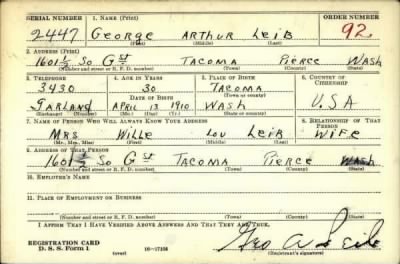 SERIAL NUMBER 1. NAME (Print) ORDER NUMBER
2447 George Arthur Leib 92
(First) (Middle) (Last)
2. ADDRESS (Print)
1601½ So G St Tacoma Pierce Wash
(Number and street or R. F. D. number) (Town) (County) (State)
3. TELEPHONE 4. AGE IN YEARS 5. PLACE OF BIRTH 6. COUNTRY OF CITIZENSHIP
3430 30 Tacoma
DATE OF BIRTH (Town or county)
Garland April 13 1910 Wash USA
(Exchange) (Number) (Mo.) (Day) (Yr.) (State or country)
7. NAME OF PERSON WHO WILL ALWAYS KNOW YOUR ADDRESS 8. RELATIONSHIP OF THAT PERSON
Mrs Wille Lou Leib Wife
(Mr., Mrs., Miss) (First) (Middle) (Last)
9. ADDRESS OF THAT PERSON
1601½ So G St Tacoma Pierce Wash
(Number and street or R. F. D. number) (Town) (County) (State)
10. EMPLOYER'S NAME
11. PLACE OF EMPLOYMENT OR BUSINESS
(Number and street or R. F. D. number) (Town) (County) (State)
I AFFIRM THAT I HAVE VERIFIED ABOVE ANSWERS AND THAT THEY ARE TRUE.
REGISTRATION CARD
D. S. S. Form 1 (over) 16-17105 Geo A Leib
(Registrant's signature)